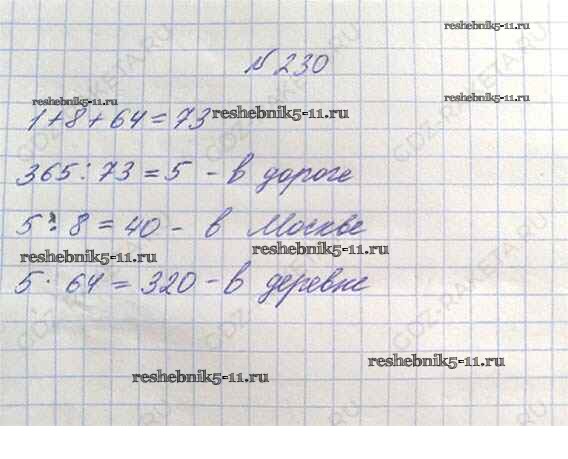 reshebnik5-11.ru
№230
reshebnik5-11.ru
reshebnik5-11.ru
1+8+64=73 reshebnik5-11.ru
GDZ-RAKETA.RU
GDZ-RAKETA.RU
365:73=5 - в дороге
5:8=40 - в Москве
reshebnik5-11.ru reshebnik5-11.ru
5·64=320-в деревне
GDZ-RAKETA.RU
GDZ-RAKETA.RU
reshebnik5-11.ru
reshebnik5-11.ru